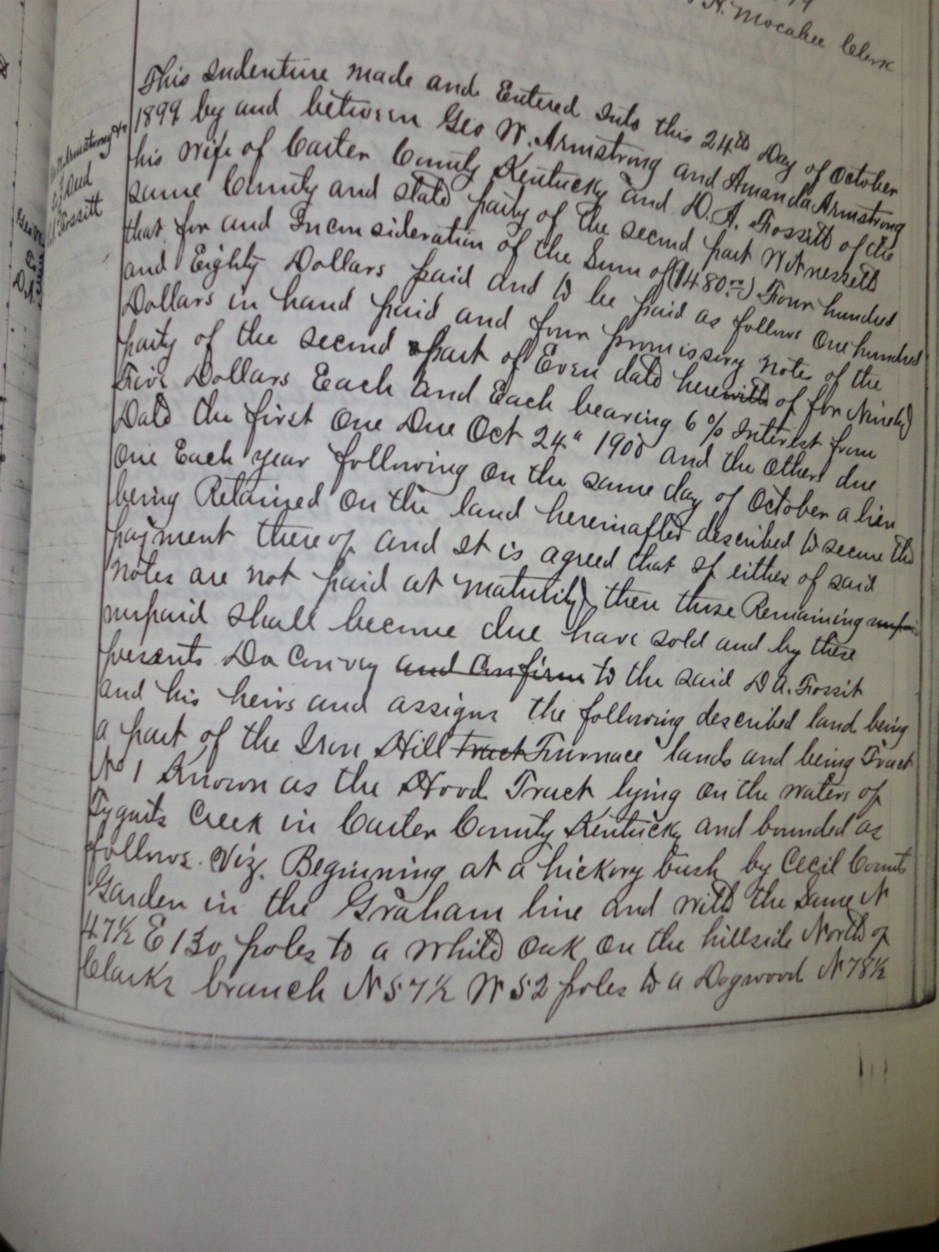 H. Mocabee Clerk
Armstrong &c
Deed
Fossitt
This Indenture made and Entered Into this 24th Day of October
1899 by and between Geo W. Armstrong and Amanda Armstrong
his wife of Carter County Kentucky and D. A. Fossitt of the
same County and state party of the second part Witnesseth
that for and Inconsideration of the Sum of ($480.00) Four hundred
and Eighty Dollars paid and to be paid as follows One hundred
Dollars in hand paid and four promissory notes of the
party of the second part of Even date herewith of for Ninety
Five Dollars Each and Each bearing 6 % Interest from
Date the first One Due Oct 24" 1900 and the others due
One Each year following on the same day of October a lien
being Retained on the land hereinafter described to secure the
payment thereof and It is agreed that If either of said
notes are not paid at maturity then those Remaining
unpaid shall become due have sold and by these
presents Do Convey and Confirm to the said D A. Fossit
and his heirs and assigns the following described land being
a part of the Iron Hill Tract Furnace lands and being Tract
No 1 Known as the Hood Tract lying on the waters of
Tygarts Creek in Carter County Kentucky and bounded as
follows. Viz. Beginning at a hickory bush by Cecil Counts
Garden in the Graham line and with the same N
47½ E 130 poles to a white oak on the hillside North of
Clarks branch N 57½ W 52 poles to a Dogwood N 78½